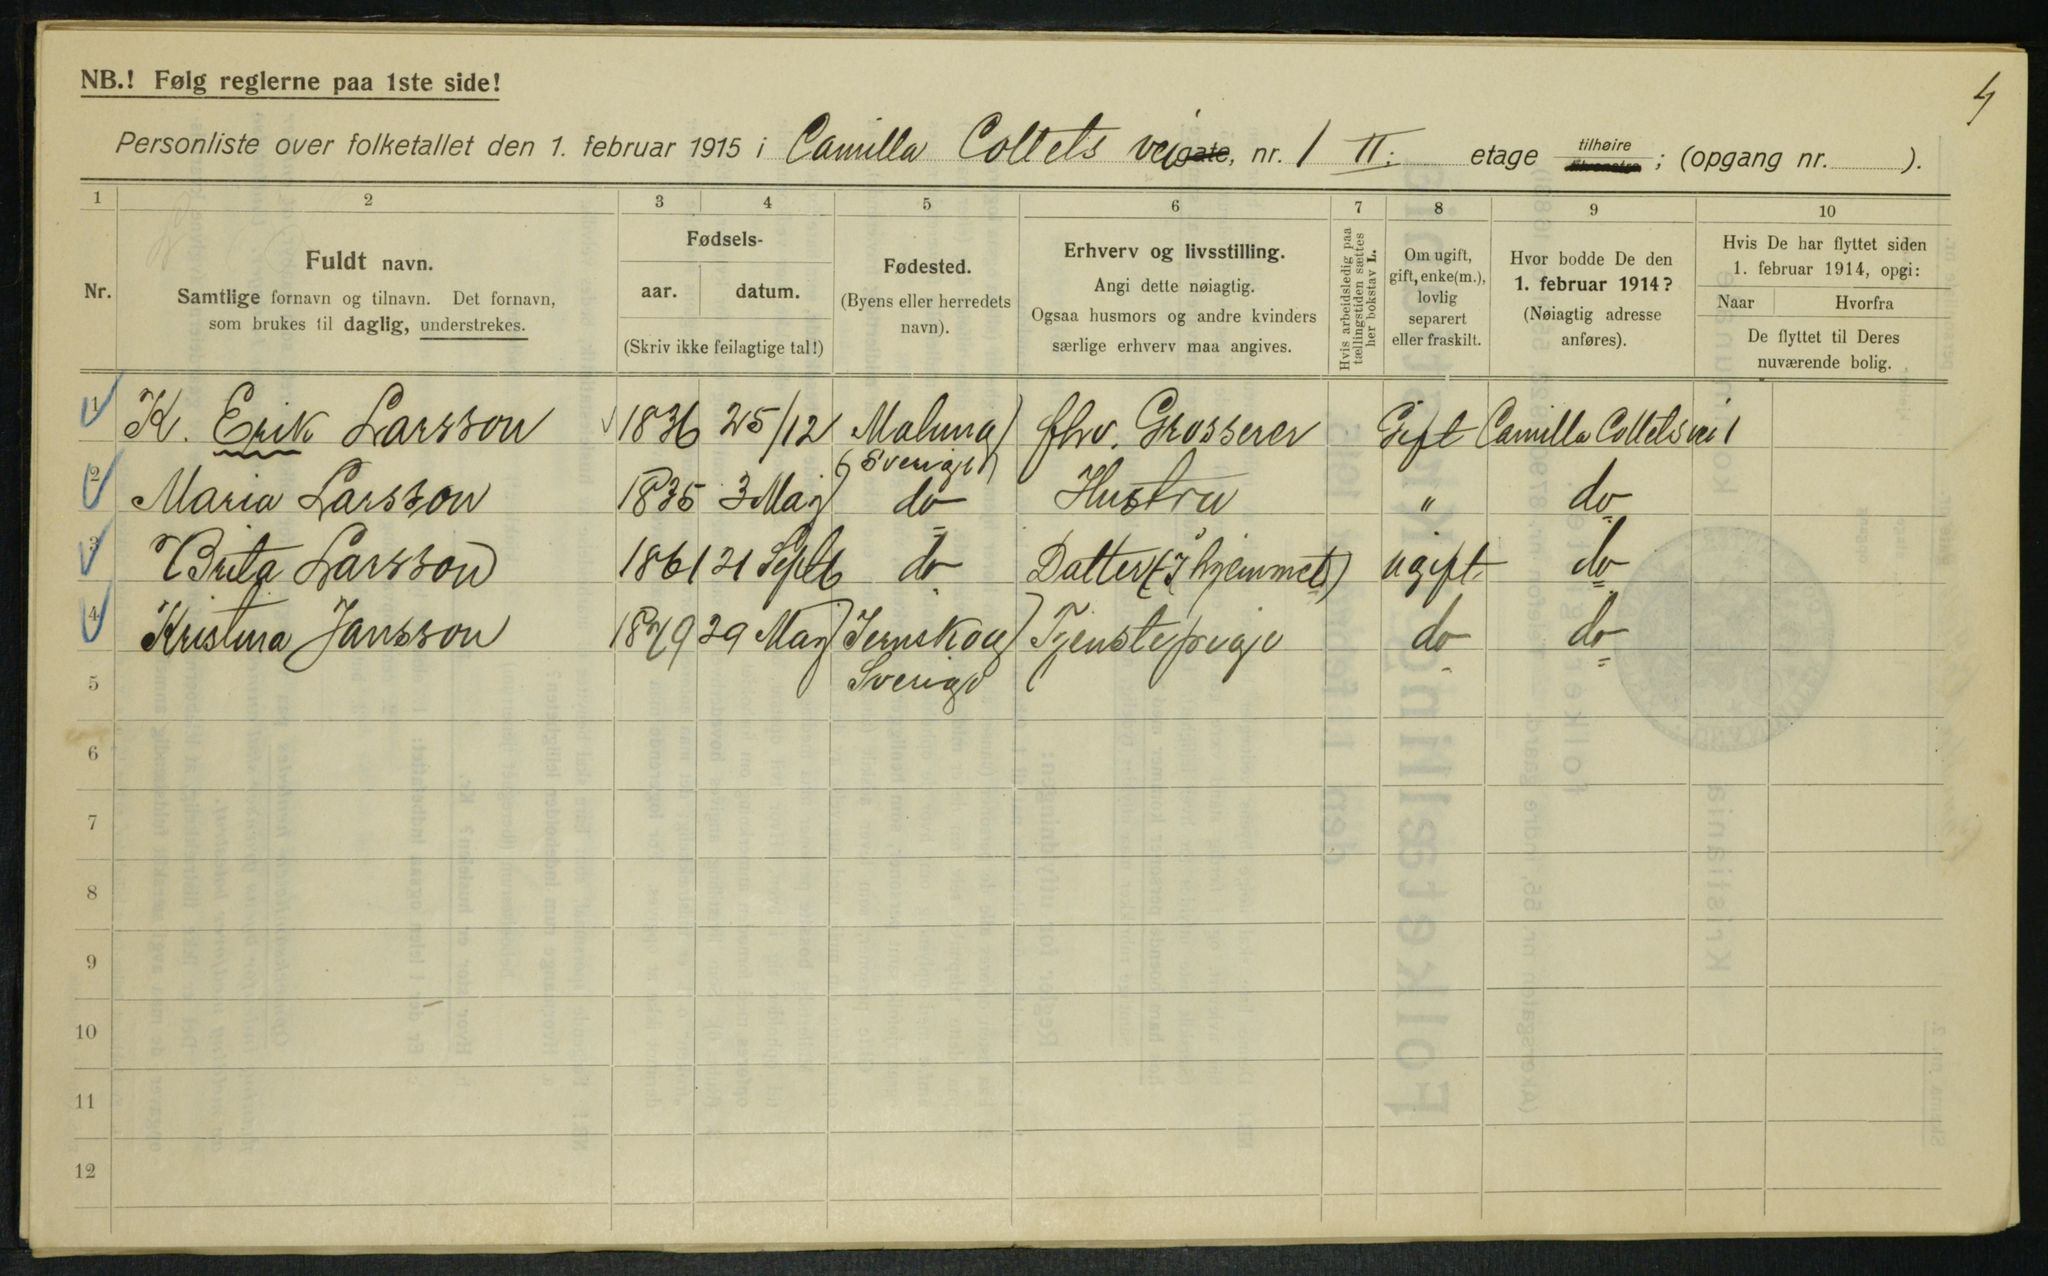 4
NB.! Følg reglerne paa 1ste side!
Personliste over folketallet den 1. februar 1915 i Camilla Colletts vei gate, nr. 1 II. etage tilhøire ; (opgang nr. ).
1 2 3 4 5 6 7 8 9 10
Nr.
Fuldt navn.
Samtlige fornavn og tilnavn. Det fornavn,
som brukes til daglig, understrekes.
Fødsels-
aar. datum.
(Skriv ikke feilagtige tal!)
Fødested.
(Byens eller herredets
navn).
Erhverv og livsstilling.
Angi dette nøiagtig.
Ogsaa husmors og andre kvinders
særlige erhverv maa angives.
Hvis arbeidsledig paa
tællingstiden sættes
her bokstav L.
Om ugift,
gift, enke(m.),
lovlig
separert
eller fraskilt.
Hvor bodde De den
1. februar 1914?
(Nøiagtig adresse
anføres).
Hvis De har flyttet siden
1. februar 1914, opgi:
Naar Hvorfra
De flyttet til Deres
nuværende bolig.
1 K. Erik Larsson 1836 25/12 Malung (Sverige) fhv. Grosserer Gift Camilla Colletsvei 1
2 Maria Larsson 1835 3 Maj do Hustru " do
3 Brita Larsson 1861 21 Septb do Datter (I hjemmet) ugift. do
4 Kristina Jansson 29 Maj Jernskog Sverige Tjenstepige do do
5
6
7
8
9
10
11
12